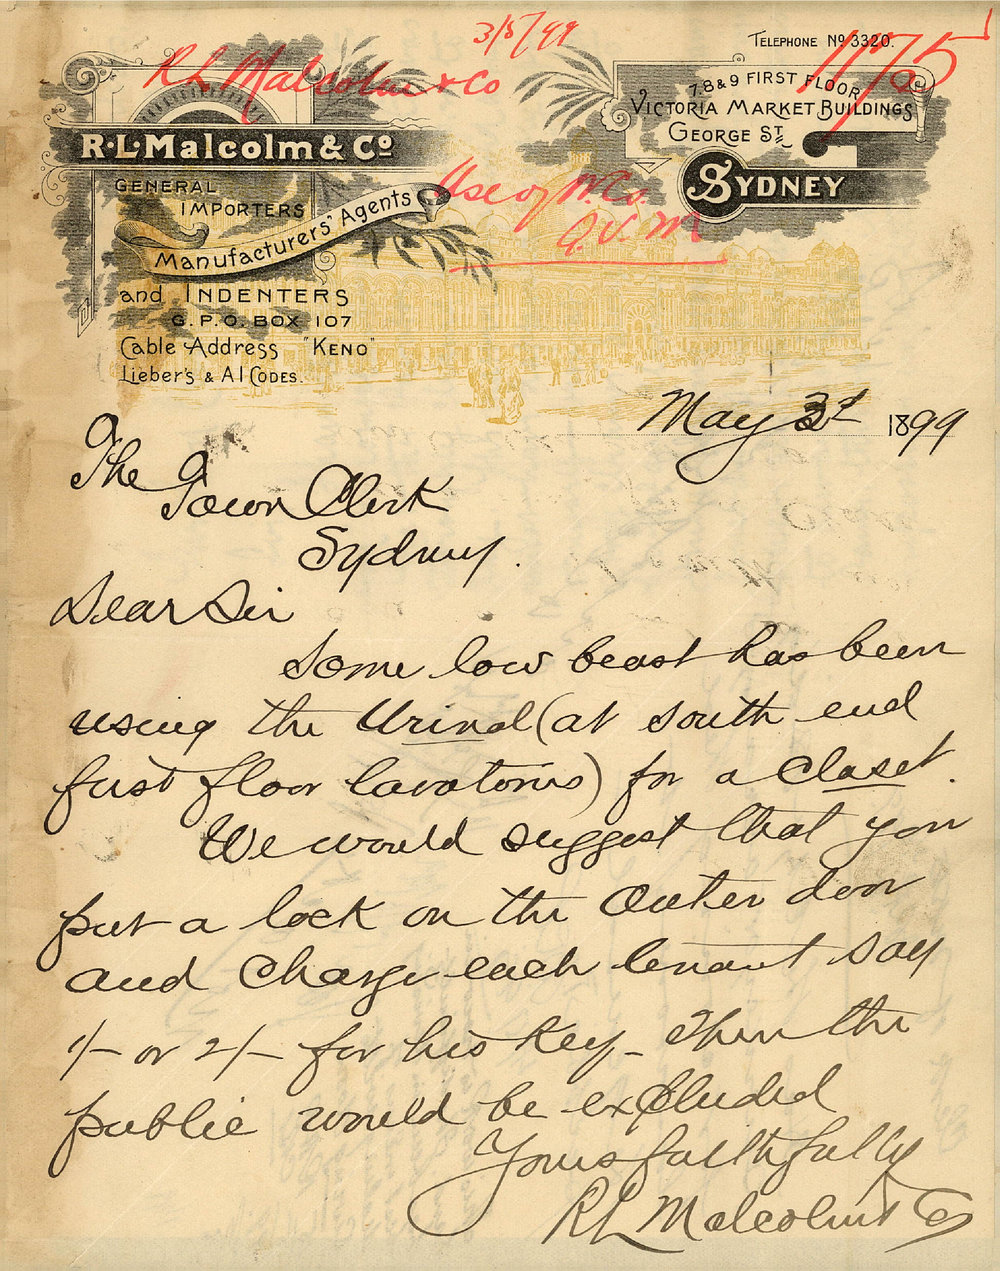 3/5/99
TELEPHONE No 3320.
1175
R L Malcolm & Co
7,8 & 9 FIRST FLOOR
VICTORIA MARKET BUILDINGS
GEORGE ST.
SYDNEY
R.L. Malcolm & Co
GENERAL
IMPORTERS
Manufacturers' Agents
and INDENTERS
G.P.O. BOX 107
Cable Address "KENO"
Lieber's & A1 Codes.
Use of W.Co.
Q.V.M
May 3d 1899
The
Town Clerk
Sydney.
Dear Sir
Some low beast has been
using the Urinal (at south end
first floor lavatories) for a Closet.
We would suggest that you
put a lock on the outer door
and charge each tenant say
1/- or 2/- for his key - Then the
public would be excluded
Yours faithfully
R L Malcolm & Co